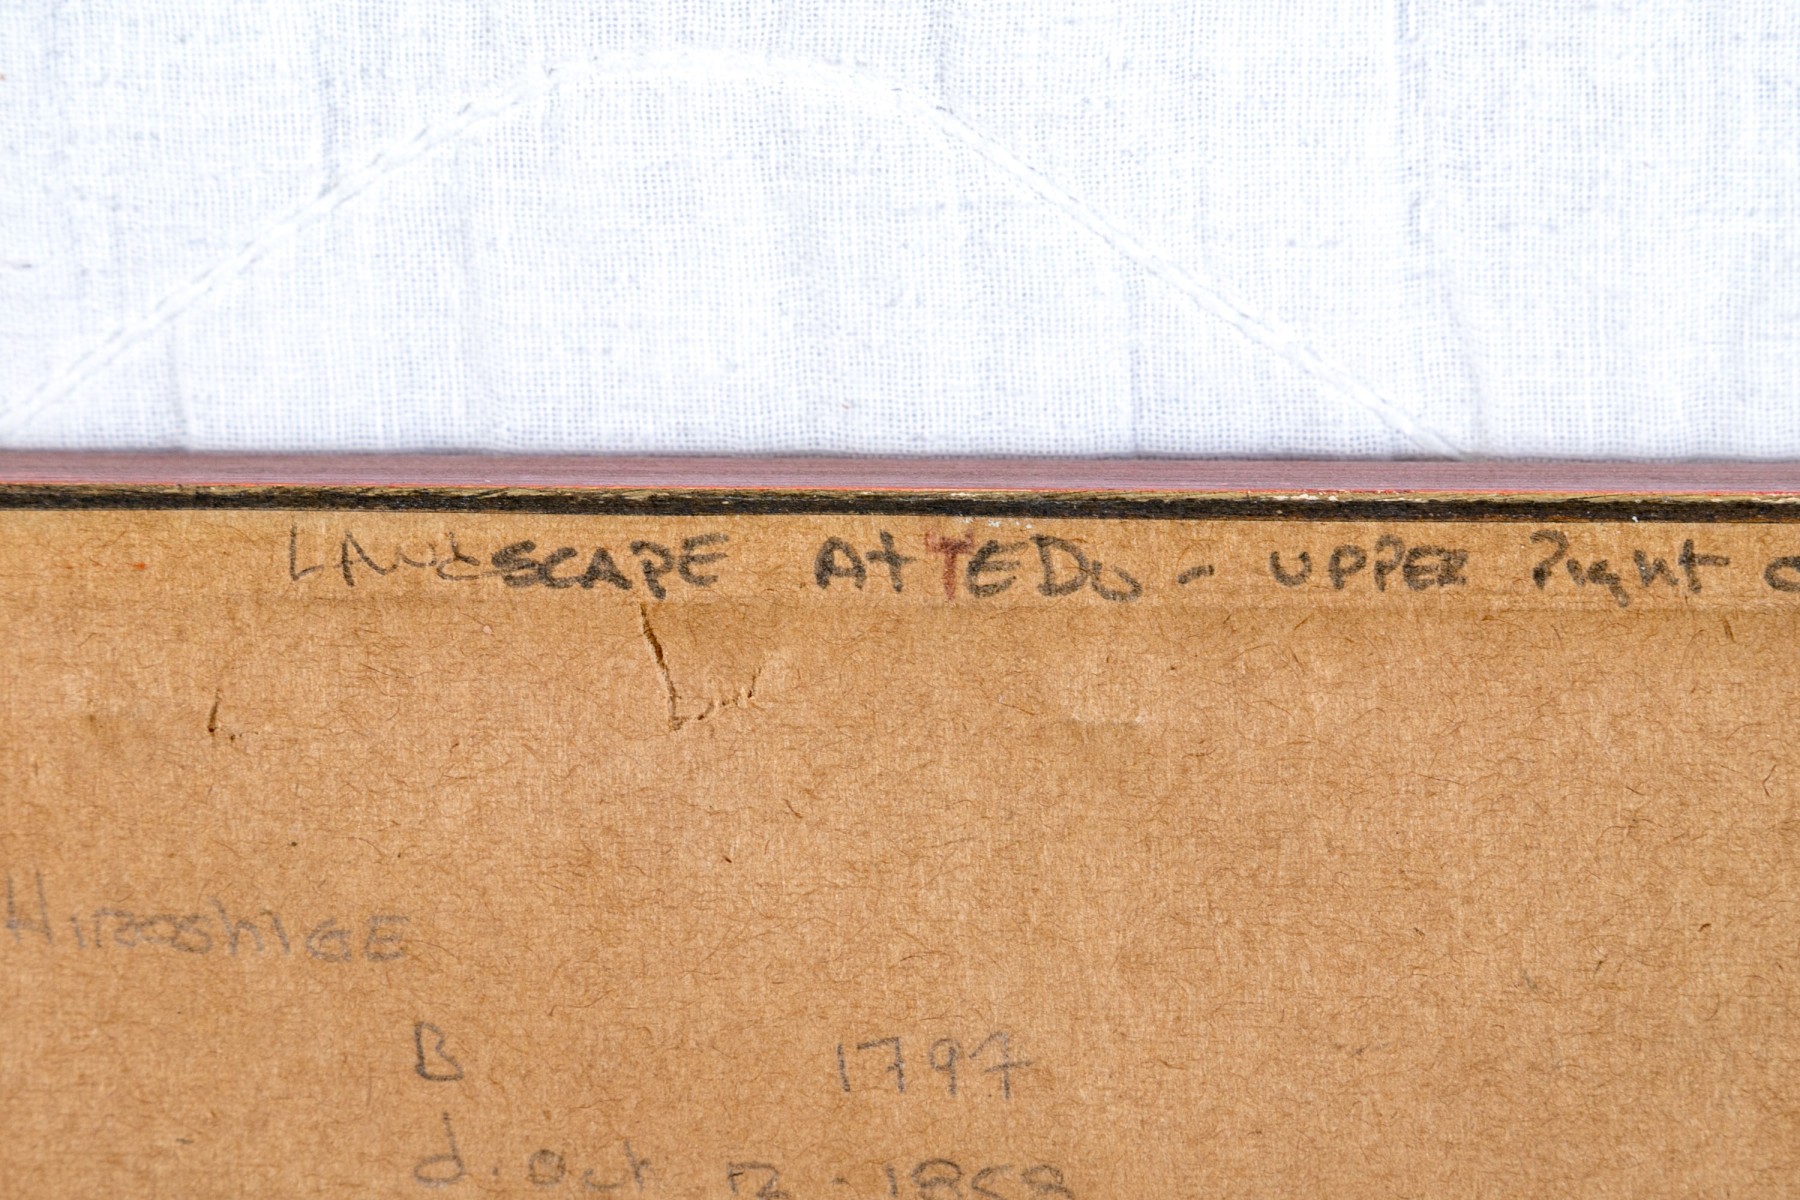 LANDSCAPE At TEDO - UPPER Right
HIROSHIGE
B 1797
d. Oct 12 - 1858